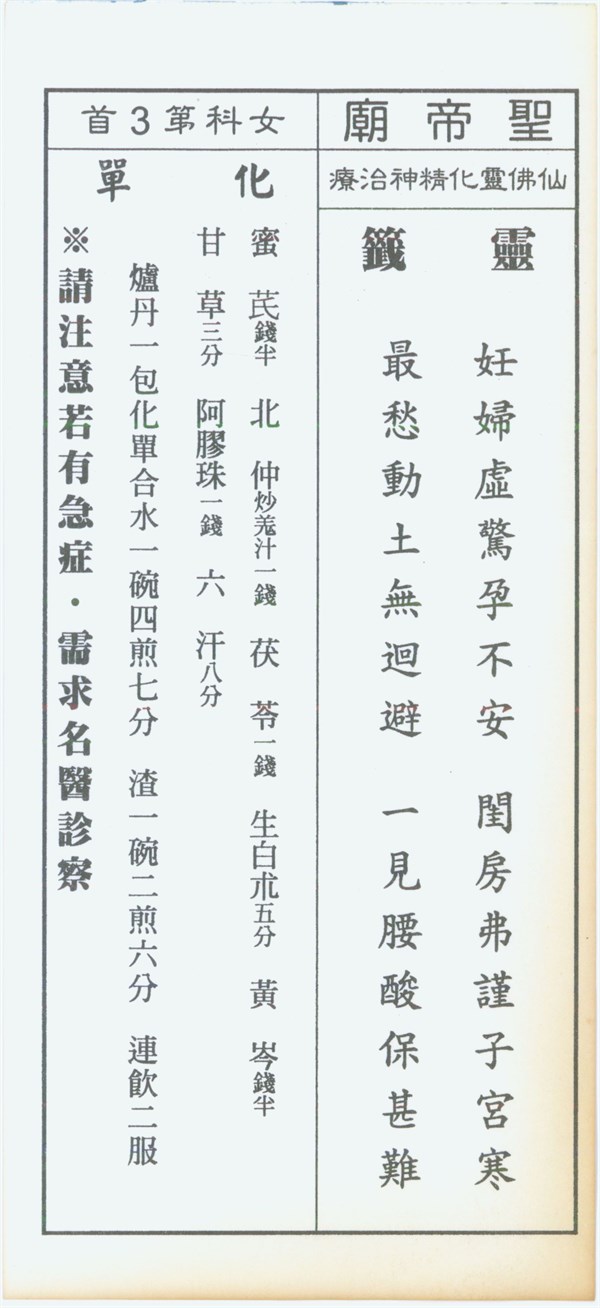 聖帝廟
仙佛靈化精神治療
靈籤
妊婦虛驚孕不安　閨房弗謹子宮寒
最愁動土無迴避　一見腰酸保甚難
女科第3首
化單
蜜芪錢半　北仲炒羗汁一錢　茯苓一錢　生白朮五分　黃岑錢半
甘草三分　阿膠珠一錢　六汗八分
爐丹一包化單合水一碗四煎七分　渣一碗二煎六分　連飲二服
※請注意若有急症·需求名醫診察